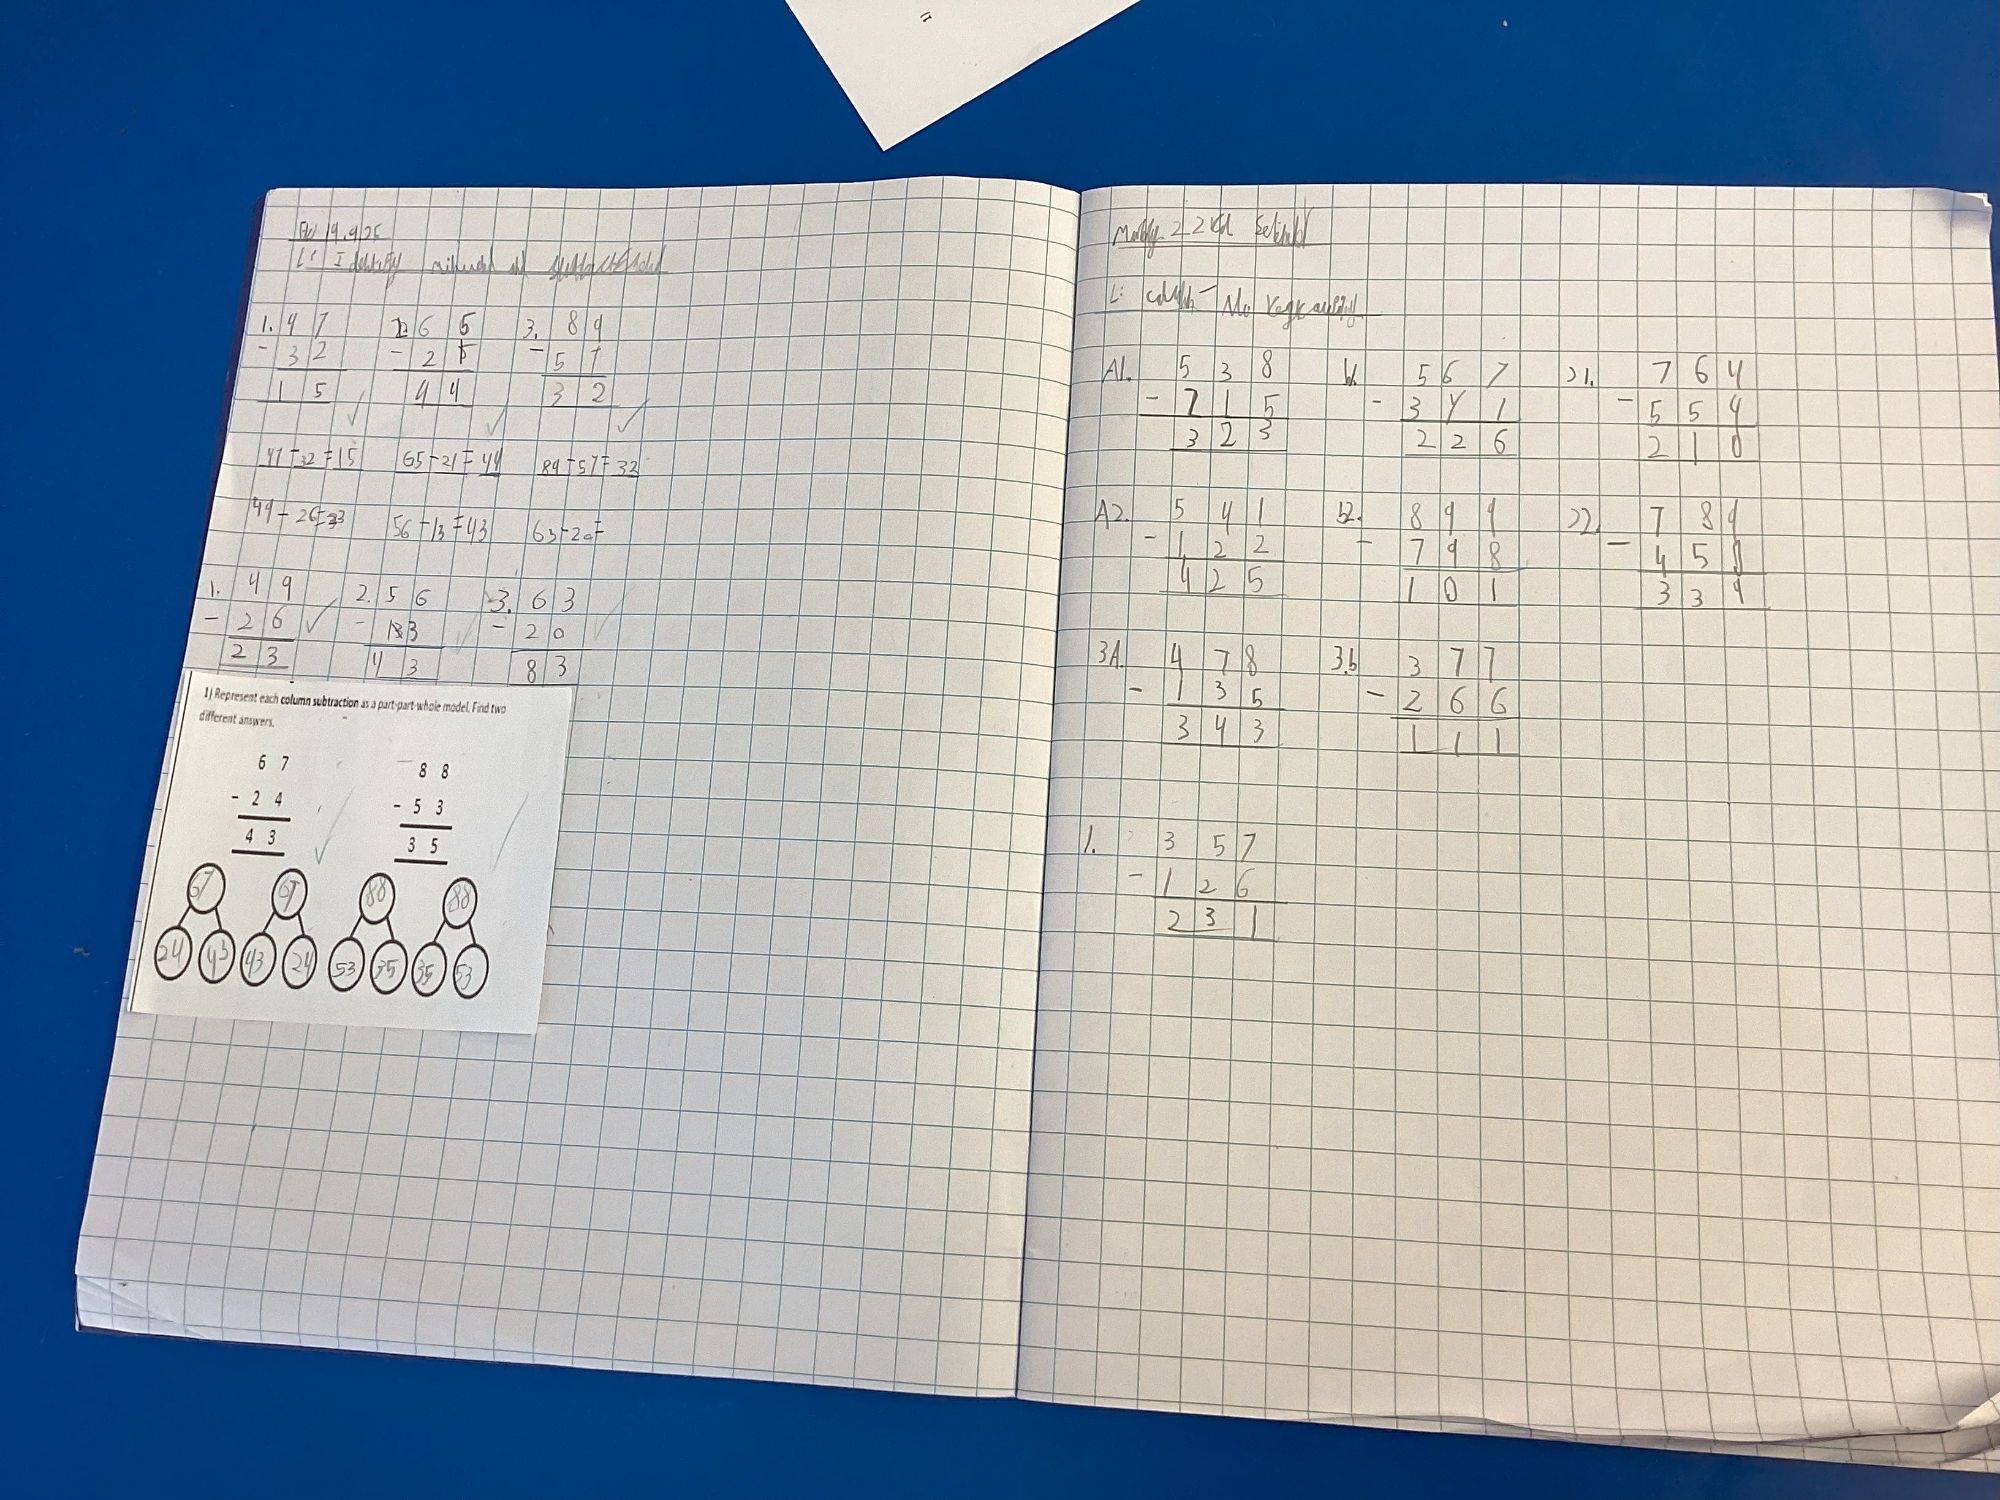 Fri 19.9.25
L: Identify
1. 4 7
- 3 2
1 5
2. 6 5
- 2 1
4 4
3. 8 9
- 5 7
3 2
47-32=15 65-21=44 89-57=32
49-26=23 56-13=43 63-20=
1. 4 9
- 2 6
2 3
2. 5 6
- 1 3
4 3
3. 6 3
- 2 0
8 3
1) Represent each column subtraction as a part-part-whole model. Find two
different answers.
6 7
- 2 4
4 3
8 8
- 5 3
3 5
67 67 88 88
24 43 43 24 53 35 35 53
L:
A1. 5 3 8
- 2 1 5
3 2 3
b1. 5 6 7
- 3 4 1
2 2 6
7 6 4
- 5 5 4
2 1 0
A2. 5 4 1
- 1 2 2
4 2 5
b2. 8 9 9
- 7 9 8
1 0 1
7 8 9
- 4 5 0
3 3 9
3A. 4 7 8
- 1 3 5
3 4 3
3b 3 7 7
- 2 6 6
1 1 1
1. 3 5 7
- 1 2 6
2 3 1